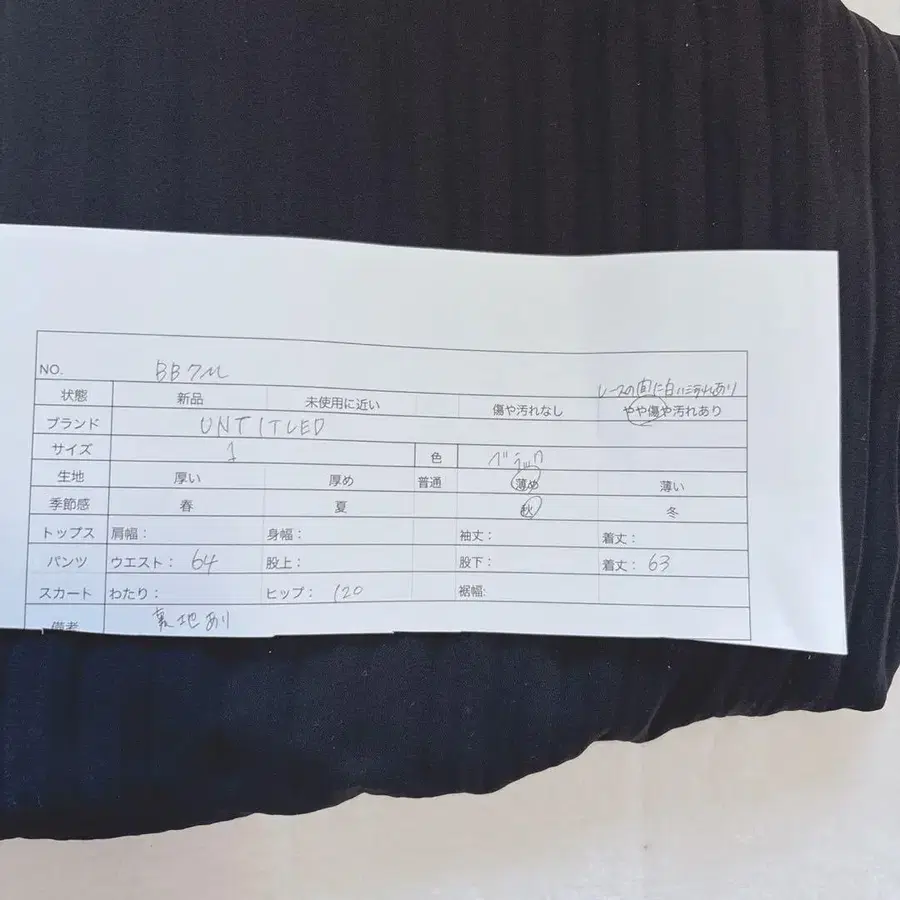 NO. BB7M
レースの間に白い汚れあり
状態 新品 未使用に近い 傷や汚れなし やや傷や汚れあり
ブランド UNTITLED
サイズ 1 色 ブラック
生地 厚い 厚め 普通 薄め 薄い
季節感 春 夏 秋 冬
トップス 肩幅： 身幅： 袖丈： 着丈：
パンツ ウエスト： 64 股上： 股下： 着丈： 63
スカート わたり： ヒップ： 120 裾幅:
備考 裏地あり